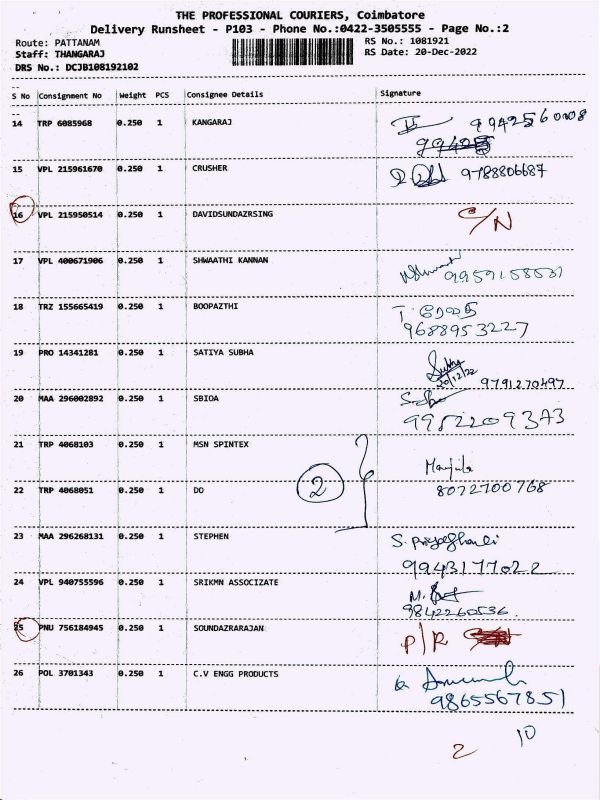 THE PROFESSIONAL COURIERS, Coimbatore
Delivery Runsheet - P103 - Phone No.:0422-3505555 - Page No.:2
Route: PATTANAM RS No.: 1081921
Staff: THANGARAJ RS Date: 20-Dec-2022
DRS No.: DCJB108192102
S No Consignment No Weight PCS Consignee Details Signature
14 TRP 6085968 0.250 1 KANGARAJ
15 VPL 215961670 0.250 1 CRUSHER 9788806687
16 VPL 215950514 0.250 1 DAVIDSUNDAZRSING C/N
17 VPL 400671906 0.250 1 SHWAATHI KANNAN
18 TRZ 155665419 0.250 1 BOOPAZTHI
9688953227
19 PRO 14341281 0.250 1 SATIYA SUBHA Subha
20/12/22 9791270497
20 MAA 296002892 0.250 1 SBIOA
21 TRP 4068103 0.250 1 MSN SPINTEX
Manjula
22 TRP 4068051 0.250 1 DO 2 8072700768
23 MAA 296268131 0.250 1 STEPHEN
9943177022
24 VPL 940755596 0.250 1 SRIKMN ASSOCIZATE
9842260536
25 PNU 756184945 0.250 1 SOUNDAZRARAJAN P/R
26 POL 3701343 0.250 1 C.V ENGG PRODUCTS
9865567851
2 10